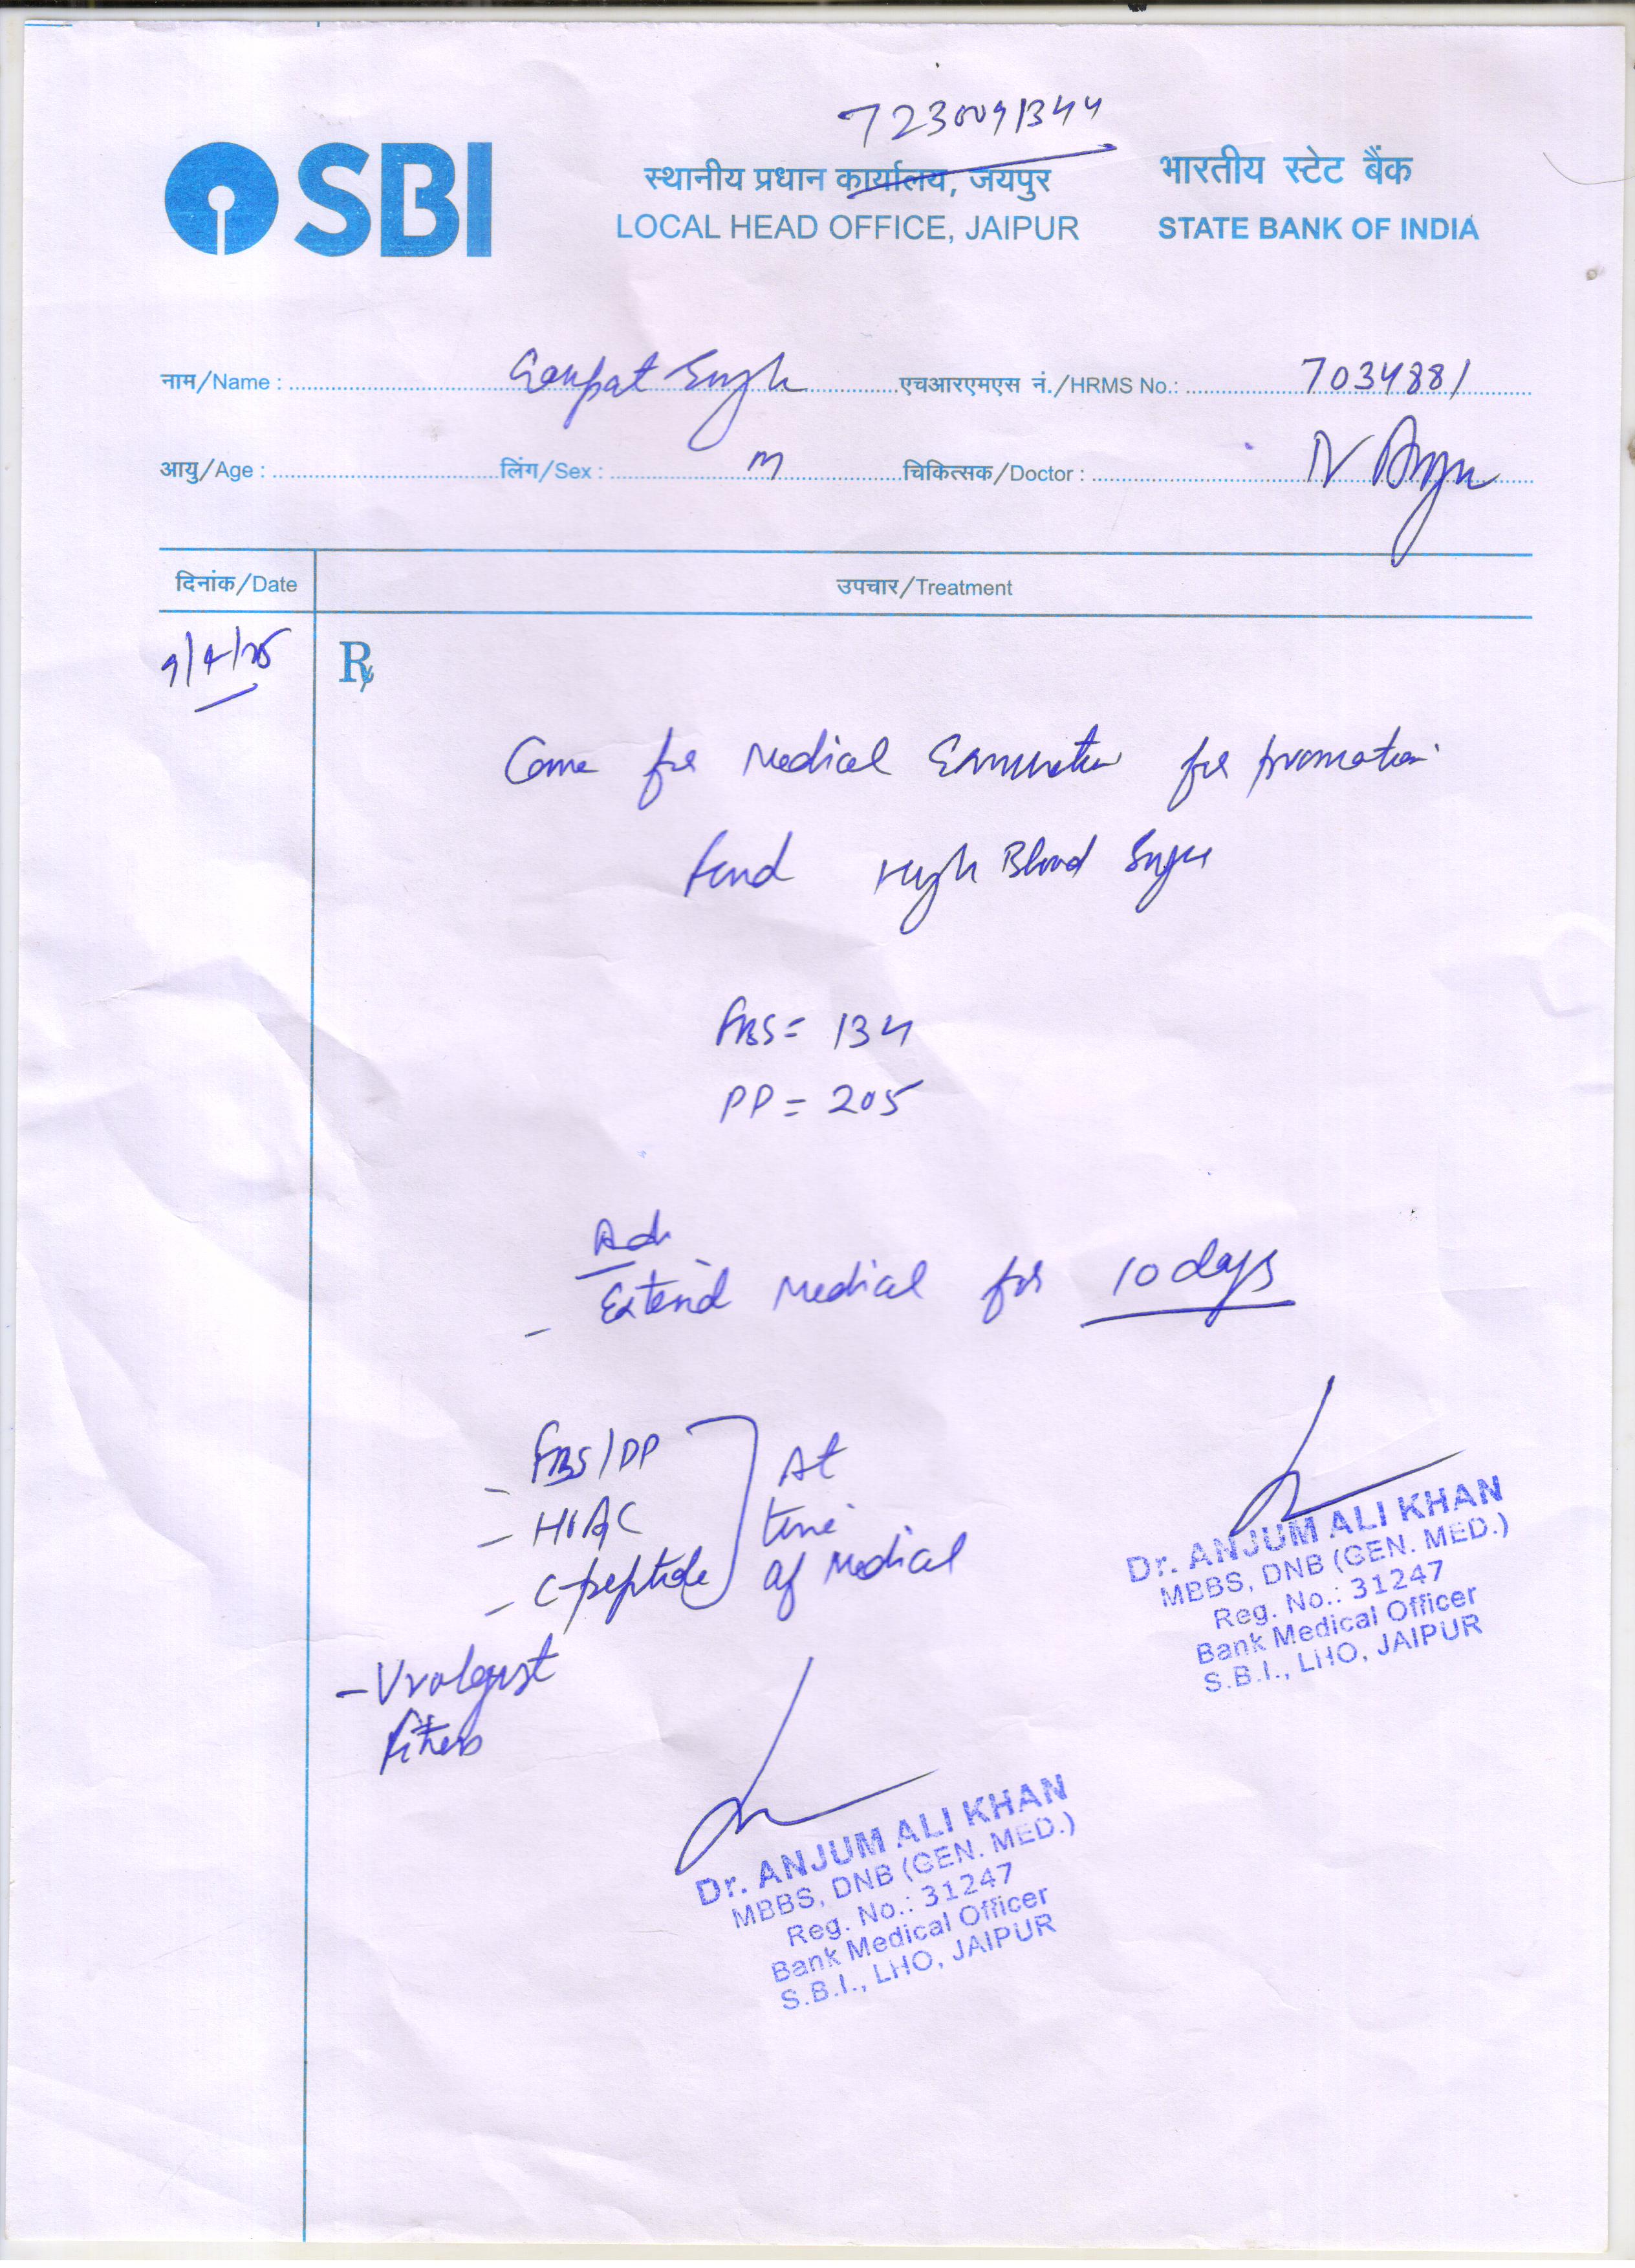 7230091344
SBI
स्थानीय प्रधान कार्यालय, जयपुर
LOCAL HEAD OFFICE, JAIPUR
भारतीय स्टेट बैंक
STATE BANK OF INDIA
नाम/Name : Ganpat Singh एचआरएमएस नं./HRMS No.: 7034881
आयु/Age : लिंग/Sex : M चिकित्सक/Doctor :
दिनांक/Date उपचार/Treatment
9/4/25 Rx
Came for Medical Examination for promotion
find High Blood Sugar
FBS = 134
PP = 205
Adv
- Extend Medical for 10 days
- FBS/PP
- H1AC
- C-peptide
At
time
of Medical
- Urologist
fitness
Dr. ANJUM ALI KHAN
MBBS, DNB (GEN. MED.)
Reg. No.: 31247
Bank Medical Officer
S.B.I., LHO, JAIPUR
Dr. ANJUM ALI KHAN
MBBS, DNB (GEN. MED.)
Reg. No.: 31247
Bank Medical Officer
S.B.I., LHO, JAIPUR